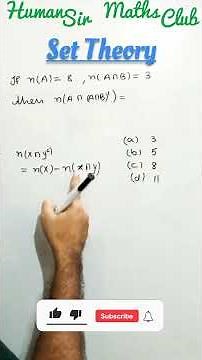 Human Sir Maths Club
Set Theory
If n(A) = 8, n(A∩B) = 3
then n(A∩(A∩B)') =
n(x∩y^c)
= n(x) - n(x∩y)
(a) 3
(b) 5
(c) 8
(d) 11
Subscribe